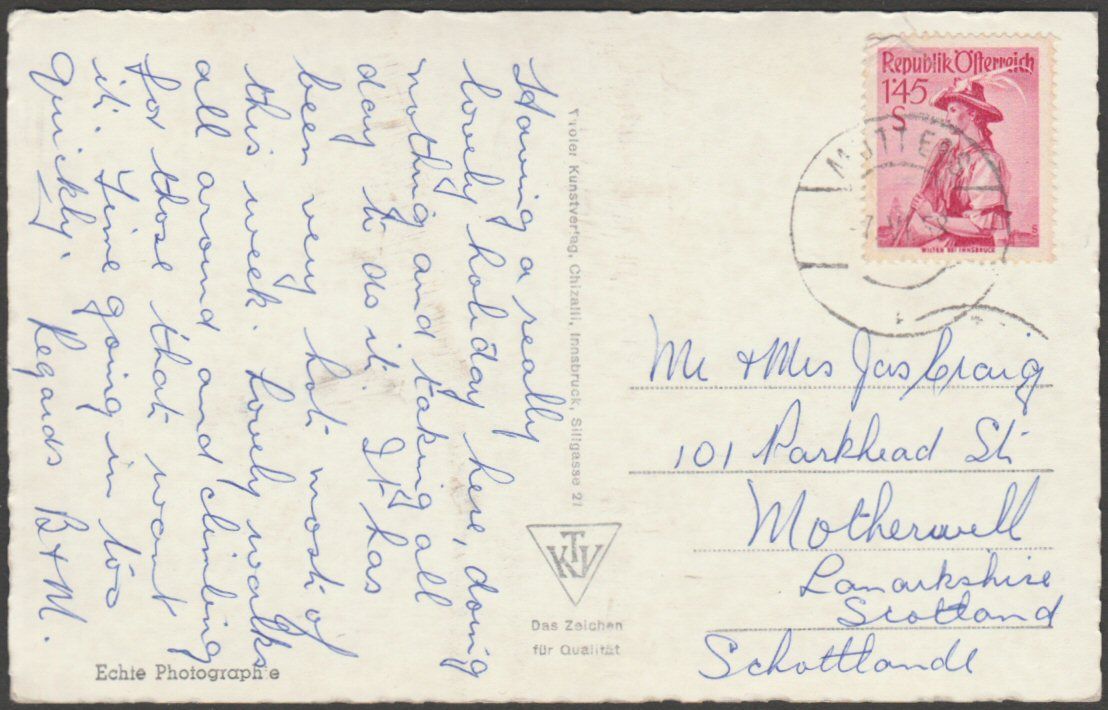 Having a really
lovely holiday here, doing
nothing and taking all
day to do it. It has
been very hot most of
this week. Lovely walks
all around and climbing
for those that want
it. Time going in too
quickly.
Regards B+M.
Echte Photographie
Tiroler Kunstverlag, Chizalli, Innsbruck, Sillgasse 21
KTV
Das Zeichen
für Qualität
Republik Österreich
1·45
S
WILTEN BEI INNSBRUCK
S
MUTTERS
Mr & Mrs Jas Craig
101 Parkhead St
Motherwell
Lanarkshire
Scotland
Schottlande